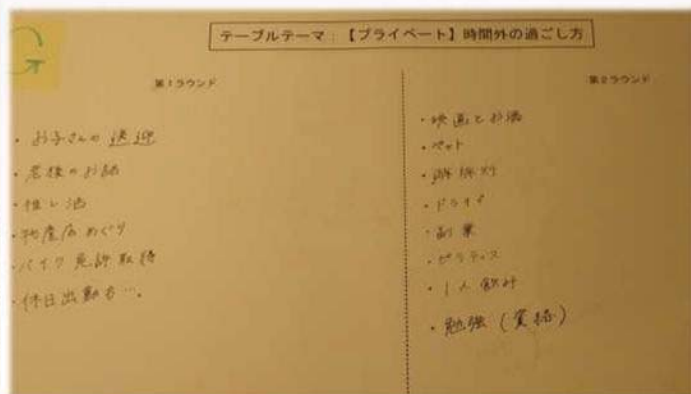 G
テーブルテーマ：【プライベート】時間外の過ごし方
第1ラウンド
・お子さんの送迎
・老後のお話
・推し活
・物産店めぐり
・バイク免許取得
・休日出勤も…。
第2ラウンド
・映画とお酒
・ペット
・ドライブ
・副業
・ピラティス
・1人飲み
・勉強(資格)